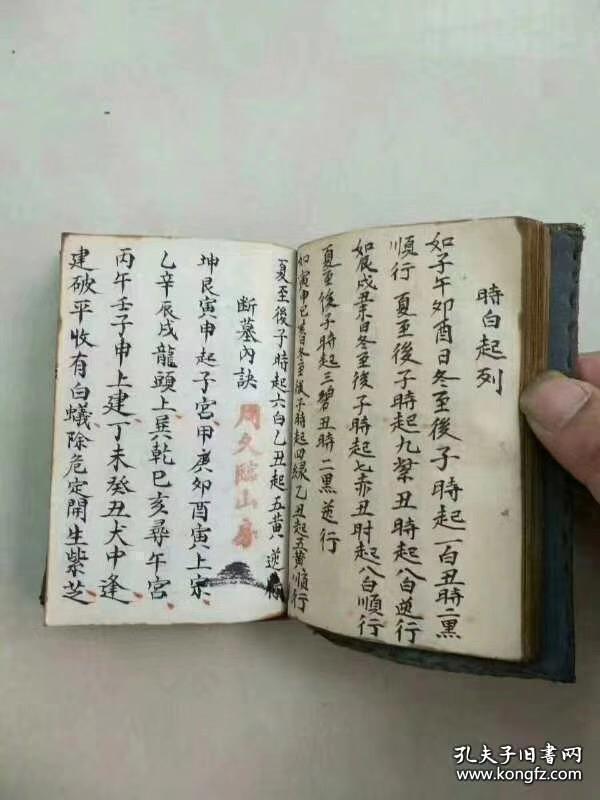 時白起列
如子午卯酉日冬至後子時起一白丑時二黑
順行 夏至後子時起九紫丑時八白逆行
如辰戌丑未日冬至後子時起七赤丑时起八白順行
夏至後子時起三碧丑時二黑逆行
如寅申巳亥日冬至後子時起四緑乙丑起五黄順行
夏至後子時起六白乙丑起五黄逆行
断墓内訣
周文臨山房
坤艮寅申起子宮甲庚卯酉寅上宗
乙辛辰戌龍頭上巽乾巳亥尋午宮
丙午壬子申上建丁未癸丑犬中逢
建破平收有白蟻除危定開生紫芝
孔夫子旧书网
www.kongfz.com